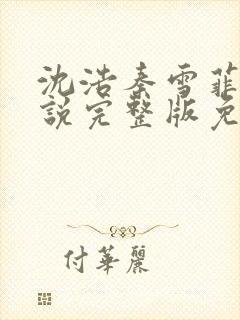 沈浩秦雪菲
說完整版免
付華麗